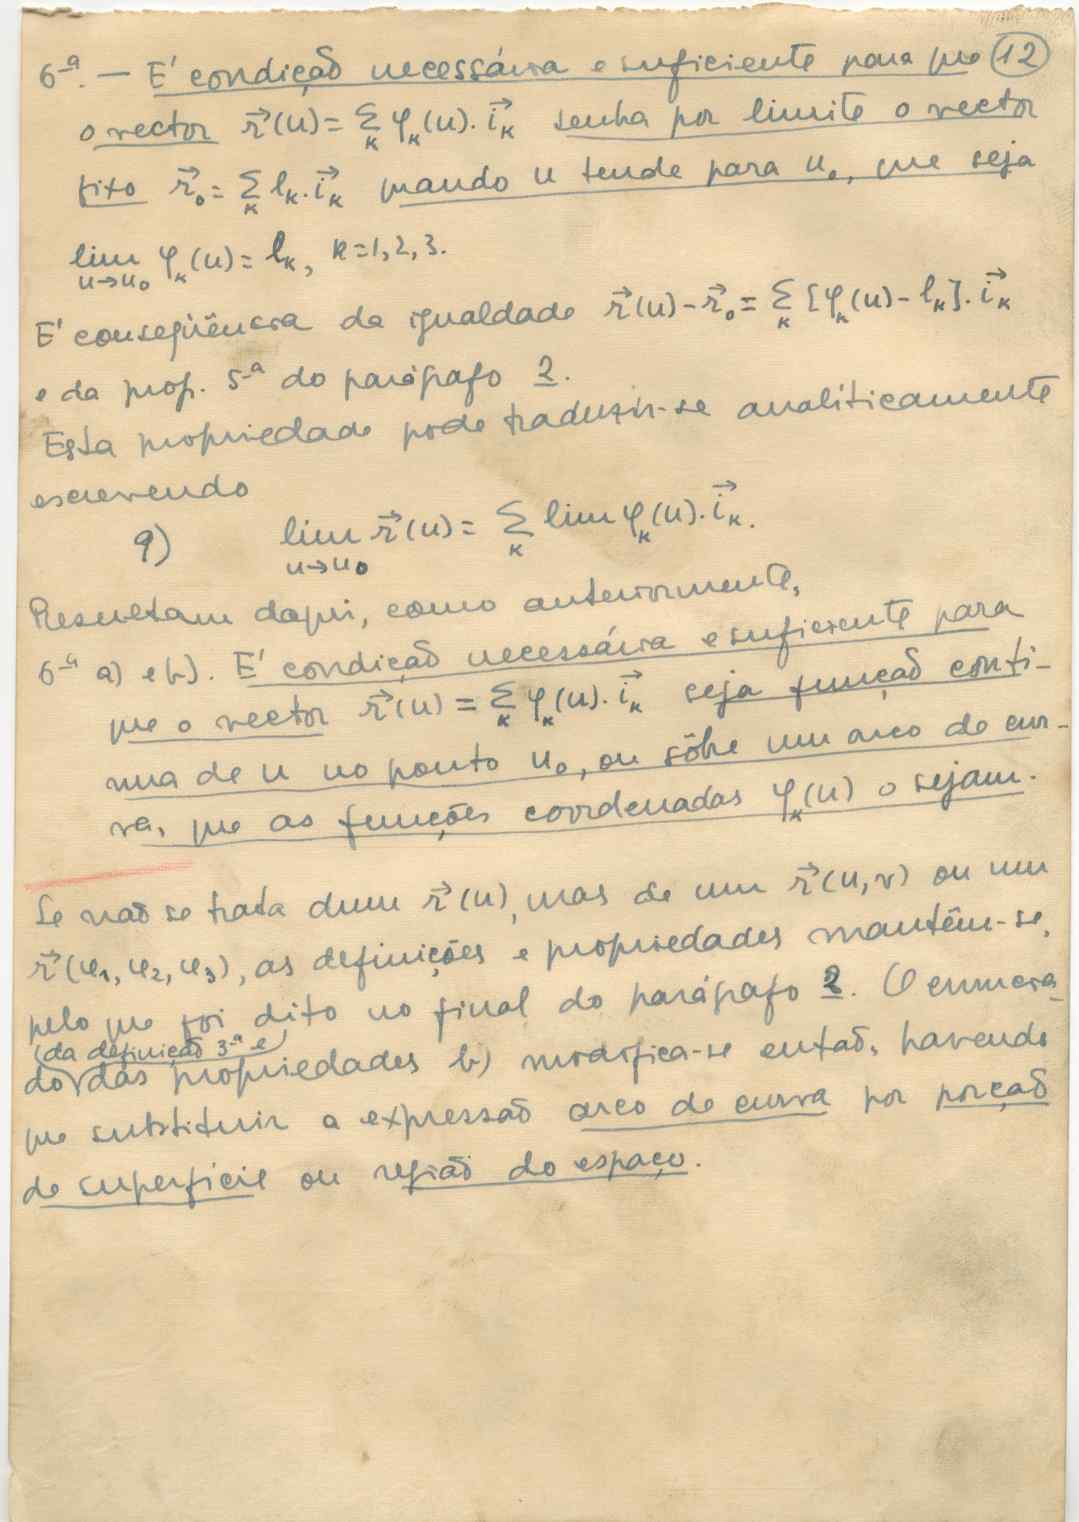 6ª. — E' condição necessária e suficiente para que (12)
o vector r⃗(u) = Σ_k φ_k(u). i⃗_k tenha por limite o vector
fixo r⃗_0 = Σ_k l_k. i⃗_k quando u tende para u_0, que seja
lim_{u→u_0} φ_k(u) = l_k, k=1,2,3.
E' conseqüência da igualdade r⃗(u) - r⃗_0 = Σ_k [φ_k(u) - l_k]. i⃗_k
e da prop. 5ª do parágrafo 2.
Esta propriedade pode traduzir-se analiticamente
escrevendo
9) lim_{u→u_0} r⃗(u) = Σ_k lim φ_k(u). i⃗_k.
Resultam daqui, como anteriormente,
6ª a) e b). E' condição necessária e suficiente para
que o vector r⃗(u) = Σ_k φ_k(u). i⃗_k seja função conti-
nua de u no ponto u_0, ou sôbre um arco de cur-
va, que as funções coordenadas φ_k(u) o sejam.
Se não se trata dum r⃗(u), mas de um r⃗(u,v) ou um
r⃗(φ_1, φ_2, φ_3), as definições e propriedades mantêm-se,
pelo que foi dito no final do parágrafo 2. O enuncia-
(da definição 3ª e)
do das propriedades b) modifica-se então, havendo
que substituir a expressão arco de curva por porção
de superfície ou região do espaço.